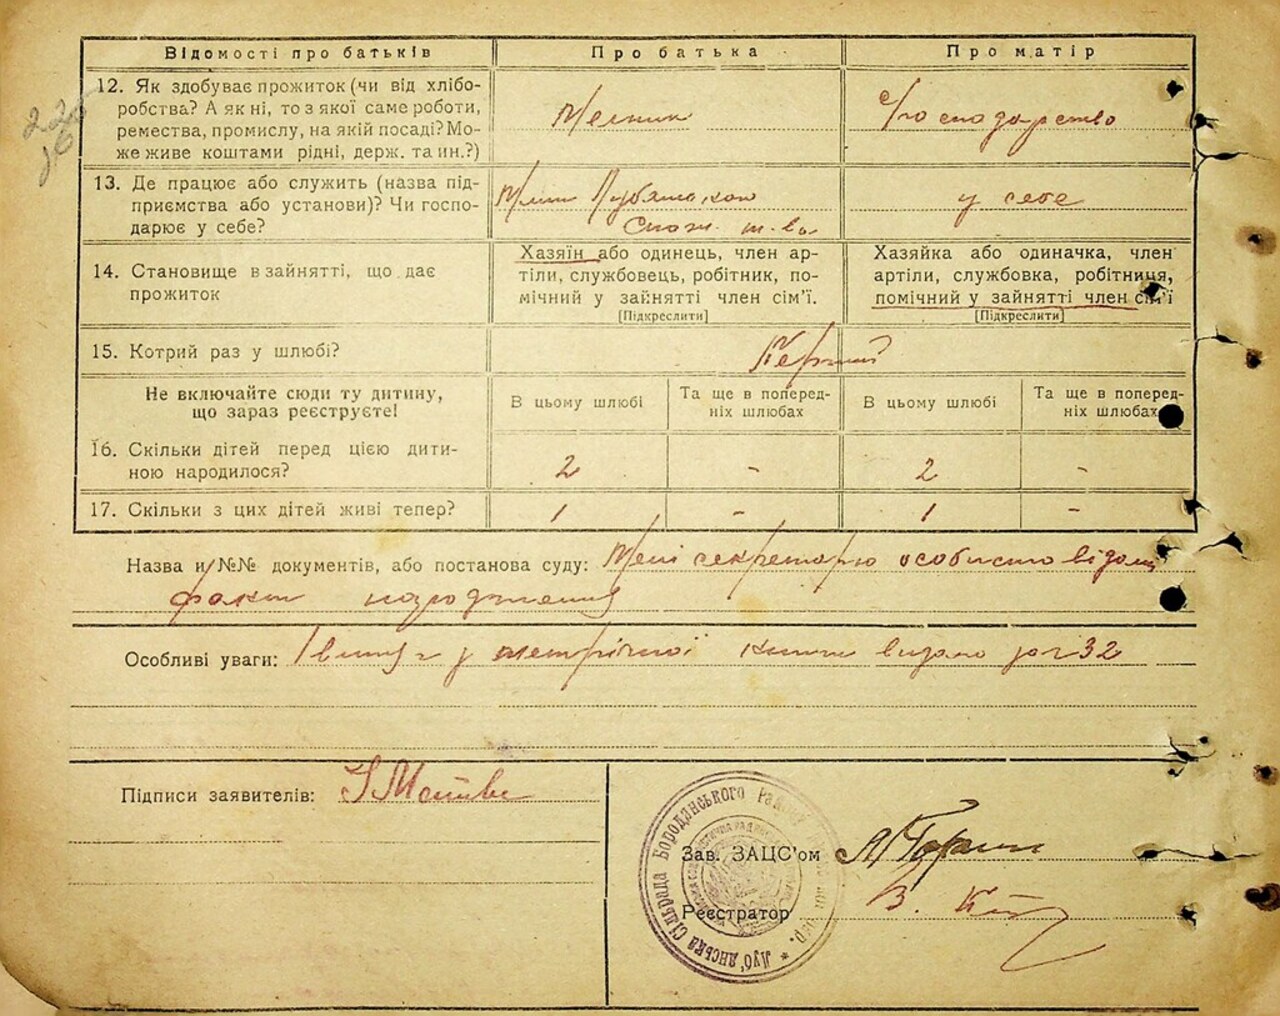 Відомості про батьків
Про батька
Про матір
12. Як здобуває прожиток (чи від хлібо-
робства? А як ні, то з якої саме роботи,
ремества, промислу, на якій посаді? Мо-
же живе коштами рідні, держ. та ин.?)
Мельник
Господарство
13. Де працює або служить (назва під-
приємства або установи)? Чи госпо-
дарює у себе?
Млин Луб'янського
Спож. т-ва
у себе
14. Становище в зайнятті, що дає
прожиток
Хазяїн або одинець, член ар-
тіли, службовець, робітник, по-
мічний у зайнятті член сім'ї.
[Підкреслити]
Хазяйка або одиначка, член
артіли, службовка, робітниця,
помічний у зайнятті член сім'ї
[Підкреслити]
15. Котрий раз у шлюбі?
Перший
Не включайте сюди ту дитину,
що зараз реєструєте!
В цьому шлюбі
Та ще в поперед-
ніх шлюбах
В цьому шлюбі
Та ще в поперед-
ніх шлюбах
16. Скільки дітей перед цією дити-
ною народилося?
2 - 2 -
17. Скільки з цих дітей живі тепер?
1 - 1 -
Назва и №№ документів, або постанова суду: Мені секретарю особисто відомий
факт народження
Особливі уваги: у метричної книги видано за ч 32
Підписи заявителів:
Зав. ЗАЦС'ом
Реєстратор В.
Луб'янська Сільрада Бородянського Район